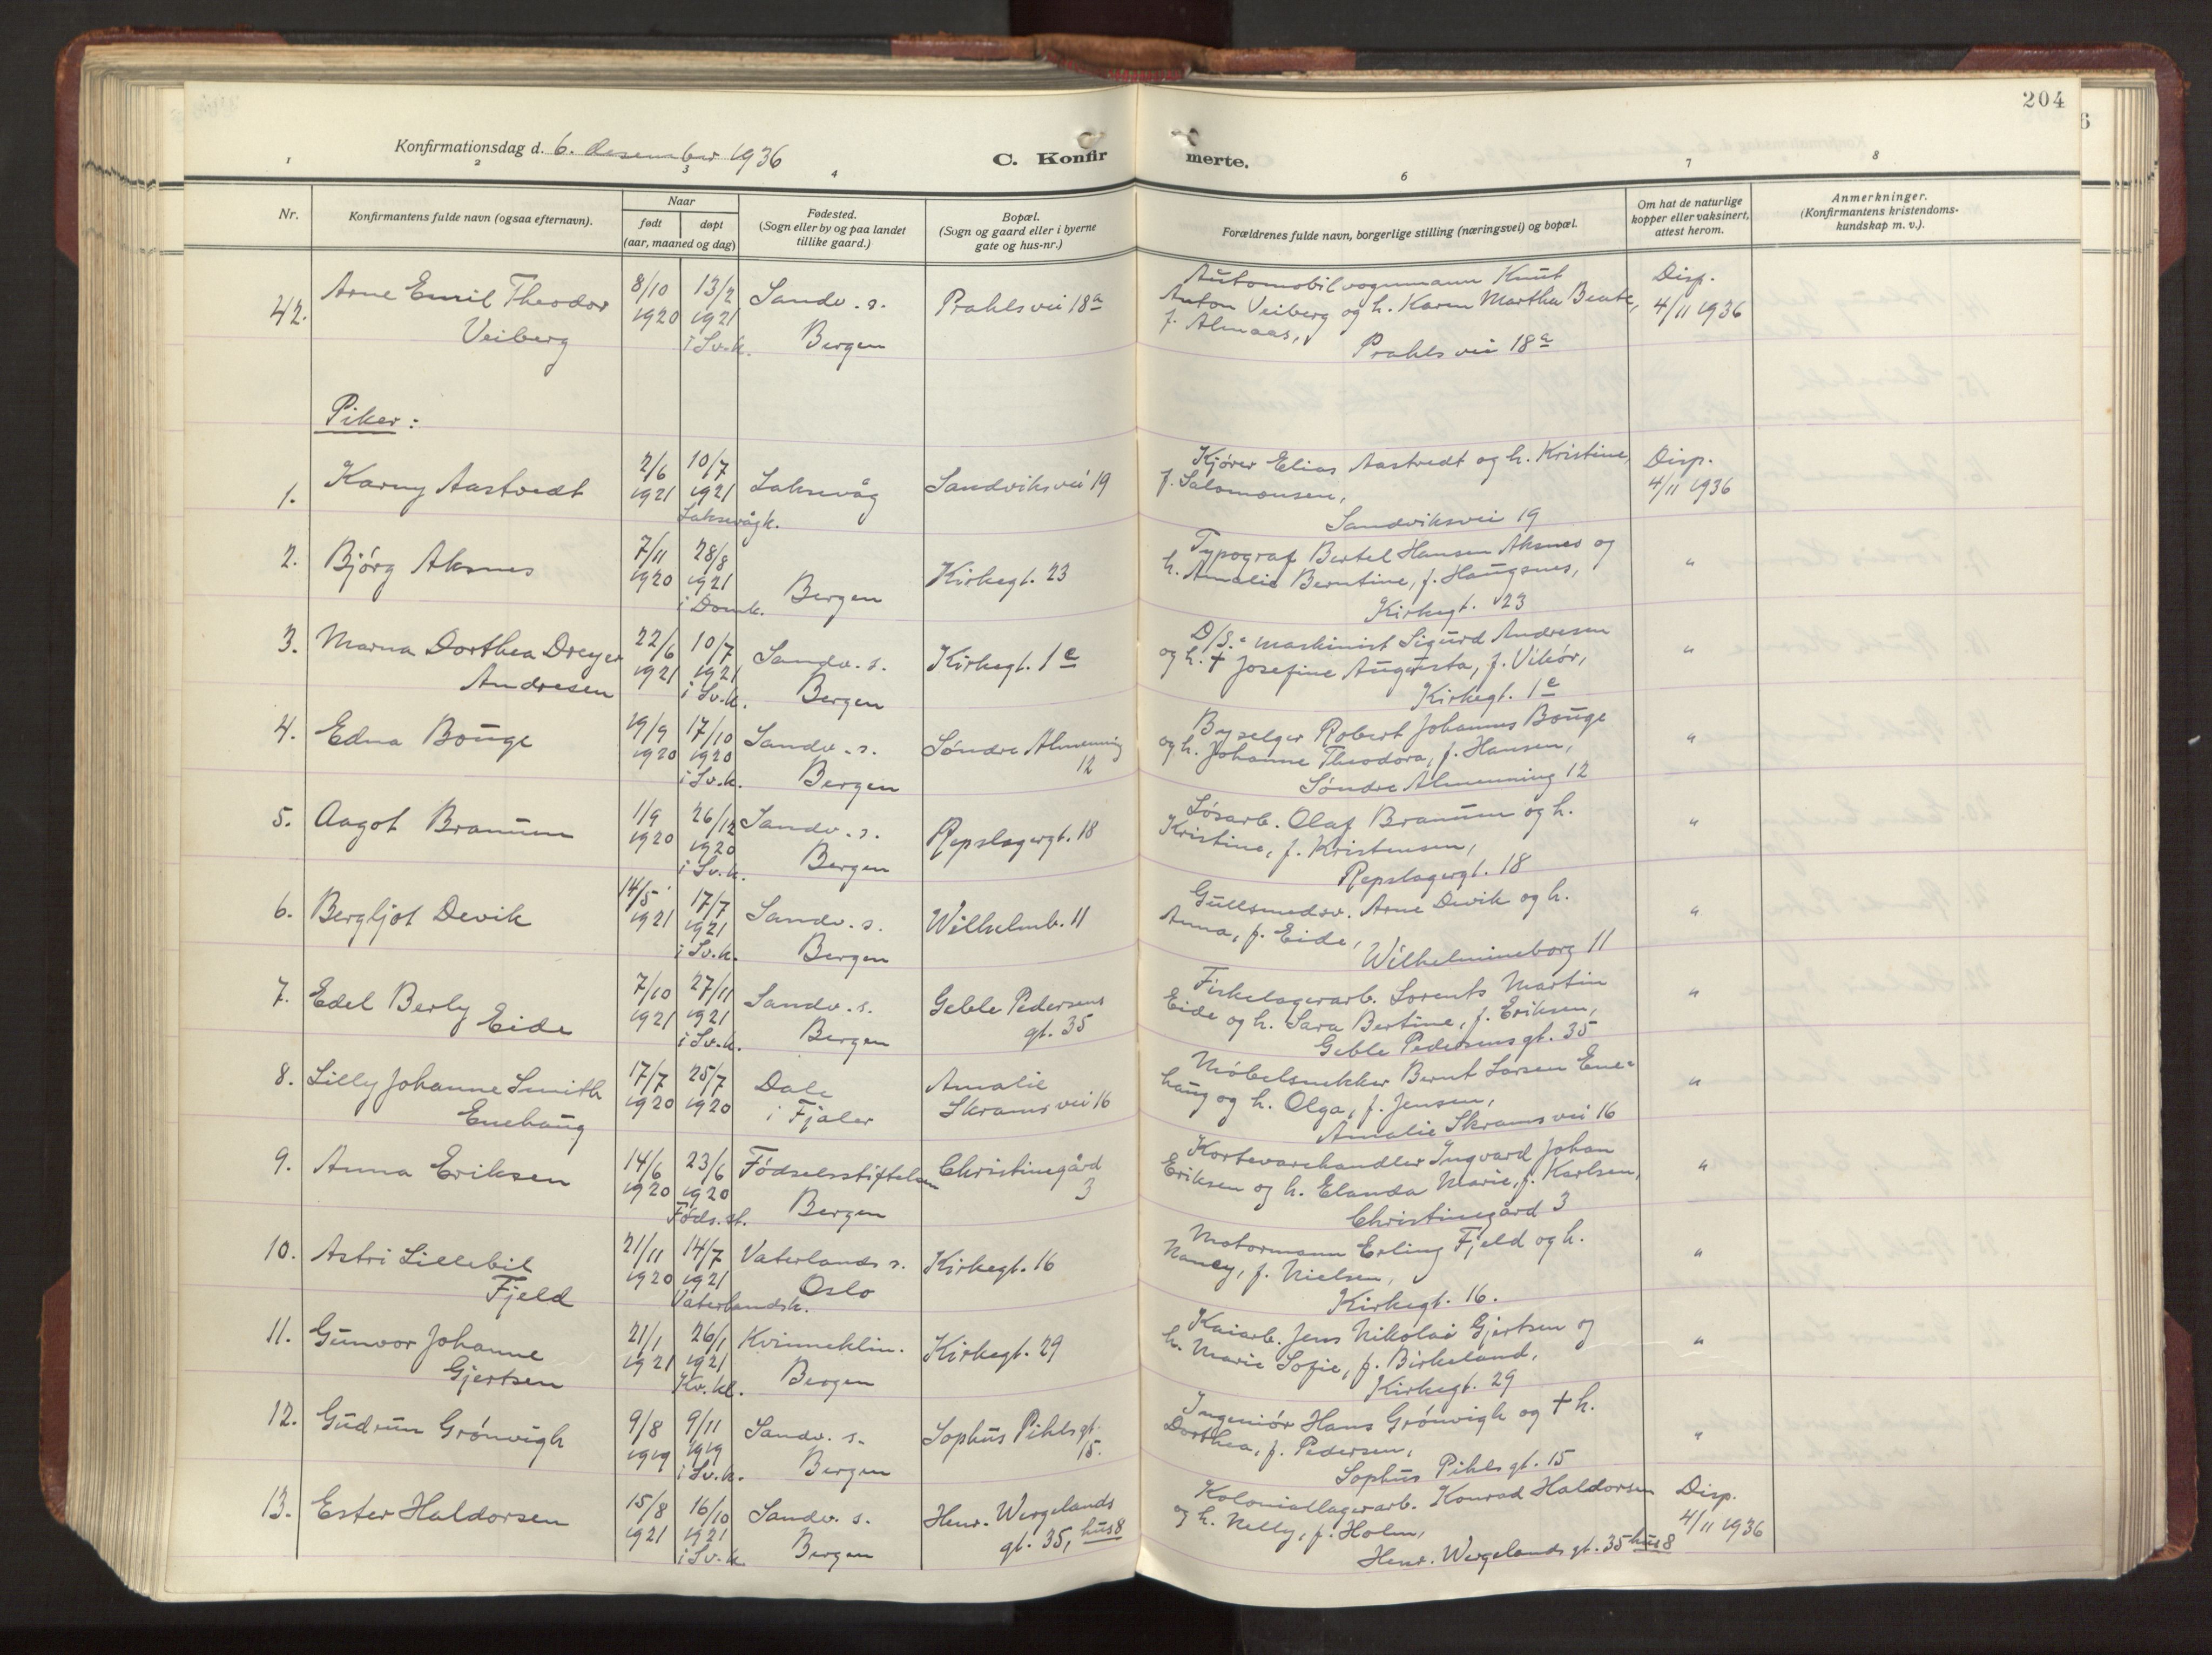 204
Konfirmationsdag d. 6. desember 1936
C. Konfirmerte.
1 2 3 4 6 7 8
Nr.
Konfirmantens fulde navn (ogsaa efternavn).
Naar
født døpt
(aar, maaned og dag)
Fødested.
(Sogn eller by og paa landet
tillike gaard.)
Bopæl.
(Sogn og gaard eller i byerne
gate og hus-nr.)
Forældrenes fulde navn, borgerlige stilling (næringsvei) og bopæl.
Om hat de naturlige
kopper eller vaksinert,
attest herom.
Anmerkninger.
(Konfirmantens kristendoms-
kundskap m. v.).
42. Arne Emil Theodor
Veiberg
8/10
1920
13/2
1921
i Sv.k.
Sandv. s.
Bergen
Prahls vei 18a
Automobilvognmann Knut
Anton Veiberg og h. Karen Martha Beate,
f. Almaas,
Prahls vei 18a
Disp.
4/11 1936
Piker:
1. Karny Aastvedt
2/6
1921
10/7
1921
Laksevåg k.
Laksevåg
Sandviksvei 19
Kjører Elias Aastvedt og h. Kristine,
f. Salomonsen,
Sandviksvei 19
Disp.
4/11 1936
2. Bjørg Aksnes
7/11
1920
28/8
1921
i Domk.
Bergen
Kirkegt. 23
Typograf Bertel Hansen Aksnes og
h. Amalie Berntine, f. Haugsnes,
Kirkegt. 23
"
3. Marna Dorthea Dreyer
Andresen
22/6
1921
10/7
1921
i Sv.k.
Sandv. s.
Bergen
Kirkegt. 1e
D/S. maskinist Sigurd Andresen
og h. † Josefine Augusta, f. Vikør,
Kirkegt. 1e
"
4. Edna Bouge
19/9
1920
17/10
1920
i Sv.k.
Sandv. s.
Bergen
Søndre Almenning
12
Byselger Robert Johannes Bouge
og h. Johanne Theodora, f. Hansen,
Søndre Almenning 12
"
5. Aagot Bramum
1/9
1920
26/12
1920
i Sv.k.
Sandv. s.
Bergen
Repslagergt. 18
Løsarb. Olaf Bramum og h.
Kristine, f. Kristensen,
Repslagergt. 18
"
6. Bergljot Devik
14/5
1921
17/7
1921
i Sv.k.
Sandv. s.
Bergen
Wilhelmb. 11
Gullsmedsv. Arne Devik og h.
Anna, f. Eide,
Wilhelmineborg 11
"
7. Edel Berly
Eide
7/10
1921
27/11
1921
i Sv.k.
Sandv. s.
Bergen
Geble Pedersens
gt. 35
Fiskelagerarb. Lorents Martin
Eide og h. Sara Bertine, f. Eriksen,
Geble Pedersens gt. 35
"
8. Lilly Johanne Smith
Enehaug
17/7
1920
25/7
1920
Dale
i Fjaler
Amalie
Skrams vei 16
Møbelsnekker Bernt Larsen Ene-
haug og h. Olga, f. Jensen,
Amalie Skrams vei 16
"
9. Anna Eriksen
14/6
1920
23/6
1920
Føds.st.
Fødselsstiftelsen
Bergen
Christinegård
3
Kortevarehandler Ingvard Johan
Eriksen og h. Elanda Marie, f. Karlsen,
Christinegård 3
"
10. Astri Lillebil
Fjeld
21/11
1920
14/7
1921
Vaterlandsk.
Vaterlands s.
Oslo
Kirkegt. 16
Motormann Erling Fjeld og h.
Nancy, f. Nielsen,
Kirkegt. 16.
"
11. Gunvor Johanne
Gjertsen
21/1
1921
26/1
1921
Kv.kl.
Kvinneklin.
Bergen
Kirkegt. 29
Kaiarb. Jens Nikolai Gjertsen og
h. Marie Sofie, f. Birkeland,
Kirkegt. 29
"
12. Gudrun Grønvigh
9/8
1919
9/11
1919
i Sv.k.
Sandv. s.
Bergen
Sophus Pihls gt.
15.
Ingeniør Hans Grønvigh og † h.
Dorthea, f. Pedersen,
Sophus Pihls gt. 15
"
13. Ester Haldorsen
15/8
1921
16/10
1921
i Sv.k.
Sandv. s.
Bergen
Henr. Wergelands
gt. 35, hus 8
Koloniallagerarb. Konrad Haldorsen
og h. Nelly, f. Holm,
Henr. Wergelands gt. 35 hus 8
Disp.
4/11 1936